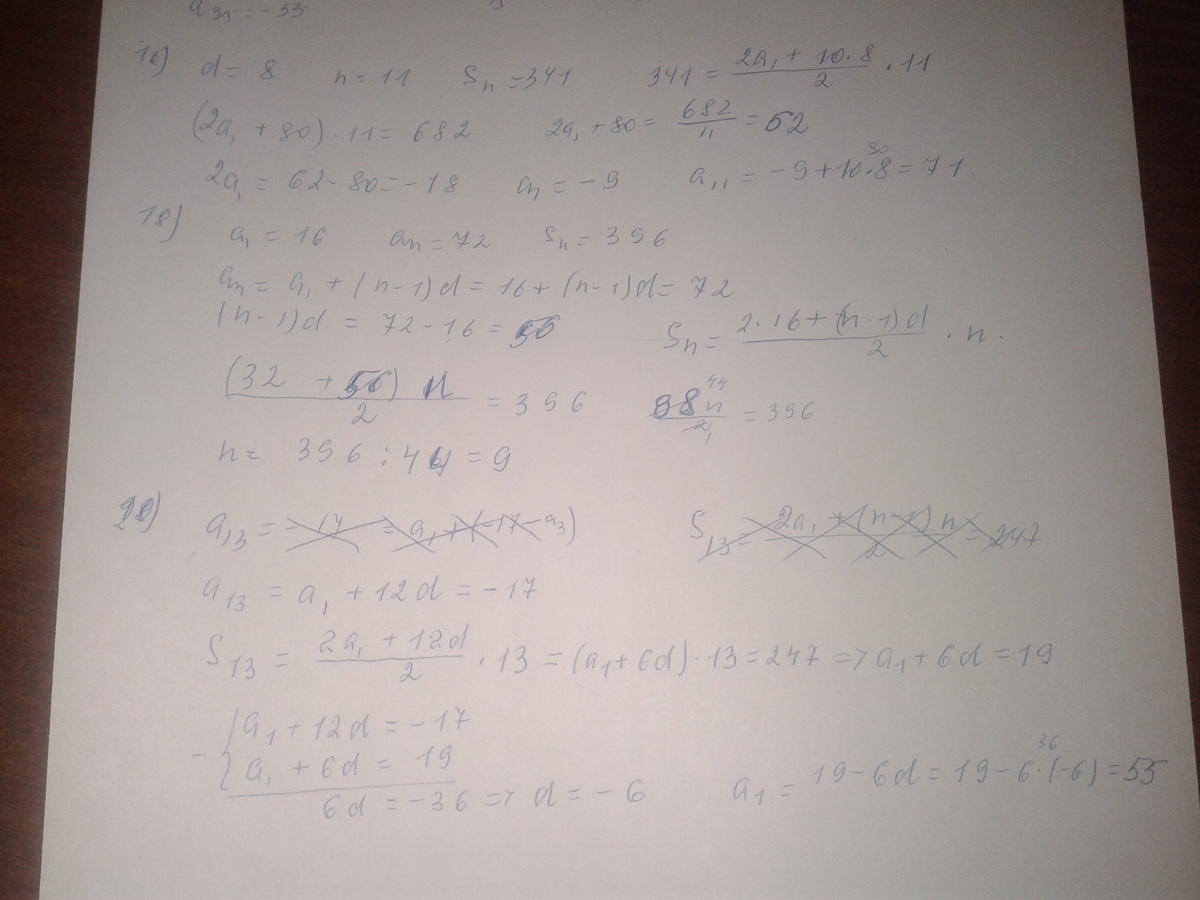 a₂₅ = -55
16) d = 8 n = 11 Sₙ = 341 341 = (2a₁ + 10·8)/2 · 11
(2a₁ + 80)·11 = 682 2a₁ + 80 = 682/11 = 52
2a₁ = 62 - 80 = -18 a₁ = -9 a₁₁ = -9 + 10·8 = 71. 80
18) a₁ = 16 aₙ = 72 Sₙ = 396
aₙ = a₁ + (n-1)d = 16 + (n-1)d = 72
(n-1)d = 72 - 16 = 56 Sₙ = (2·16 + (n-1)d)/2 · n.
(32 + 56) n/2 = 396 88n/2 = 396 44 1
n = 396 : 44 = 9
20) a₁₃ = S₁₃ = (2a₁ + (n-1) n)/2 = 247
a₁₃ = a₁ + 12d = -17
S₁₃ = (2a₁ + 12d)/2 · 13 = (a₁ + 6d)·13 = 247 => a₁ + 6d = 19
- { a₁ + 12d = -17
a₁ + 6d = 19
6d = -36 => d = -6 a₁ = 19 - 6d = 19 - 6·(-6) = 55 36